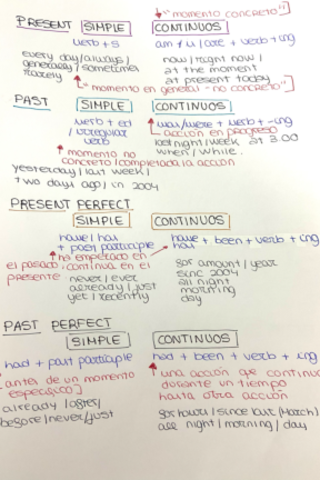 "momento concreto"]
PRESENT SIMPLE CONTINUOS
verb + s am / is / are + verb + ing
every day/always/ now / right now /
generally / sometimes at the moment
rarely at present today
"momento en general - no concreto"]
PAST SIMPLE CONTINUOS
verb + ed was/were + verb + -ing
/ irregular acción en progreso
verb last night/week at 3.00
momento no when / while.
concreto/completada la acción
yesterday / last week /
two days ago / in 2004
PRESENT PERFECT
SIMPLE CONTINUOS
have / has have + been + verb + ing
+ past participle has
ha empezado en
el pasado, continua en el for amount / year
presente never / ever since 2004
already / just all night
yet / recently morning
day
PAST PERFECT
SIMPLE CONTINUOS
had + past participle had + been + verb + ing
antes de un momento una acción que continua
específico] durante un tiempo
already / after/ hasta otra acción
before/never/just for hours / since last (March)
all night / morning / day